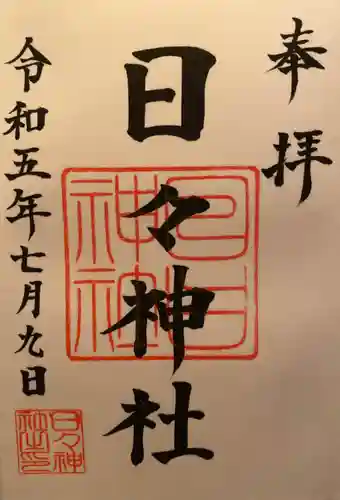 奉拝
日々神社
令和五年七月九日
日日神社
日々神社印